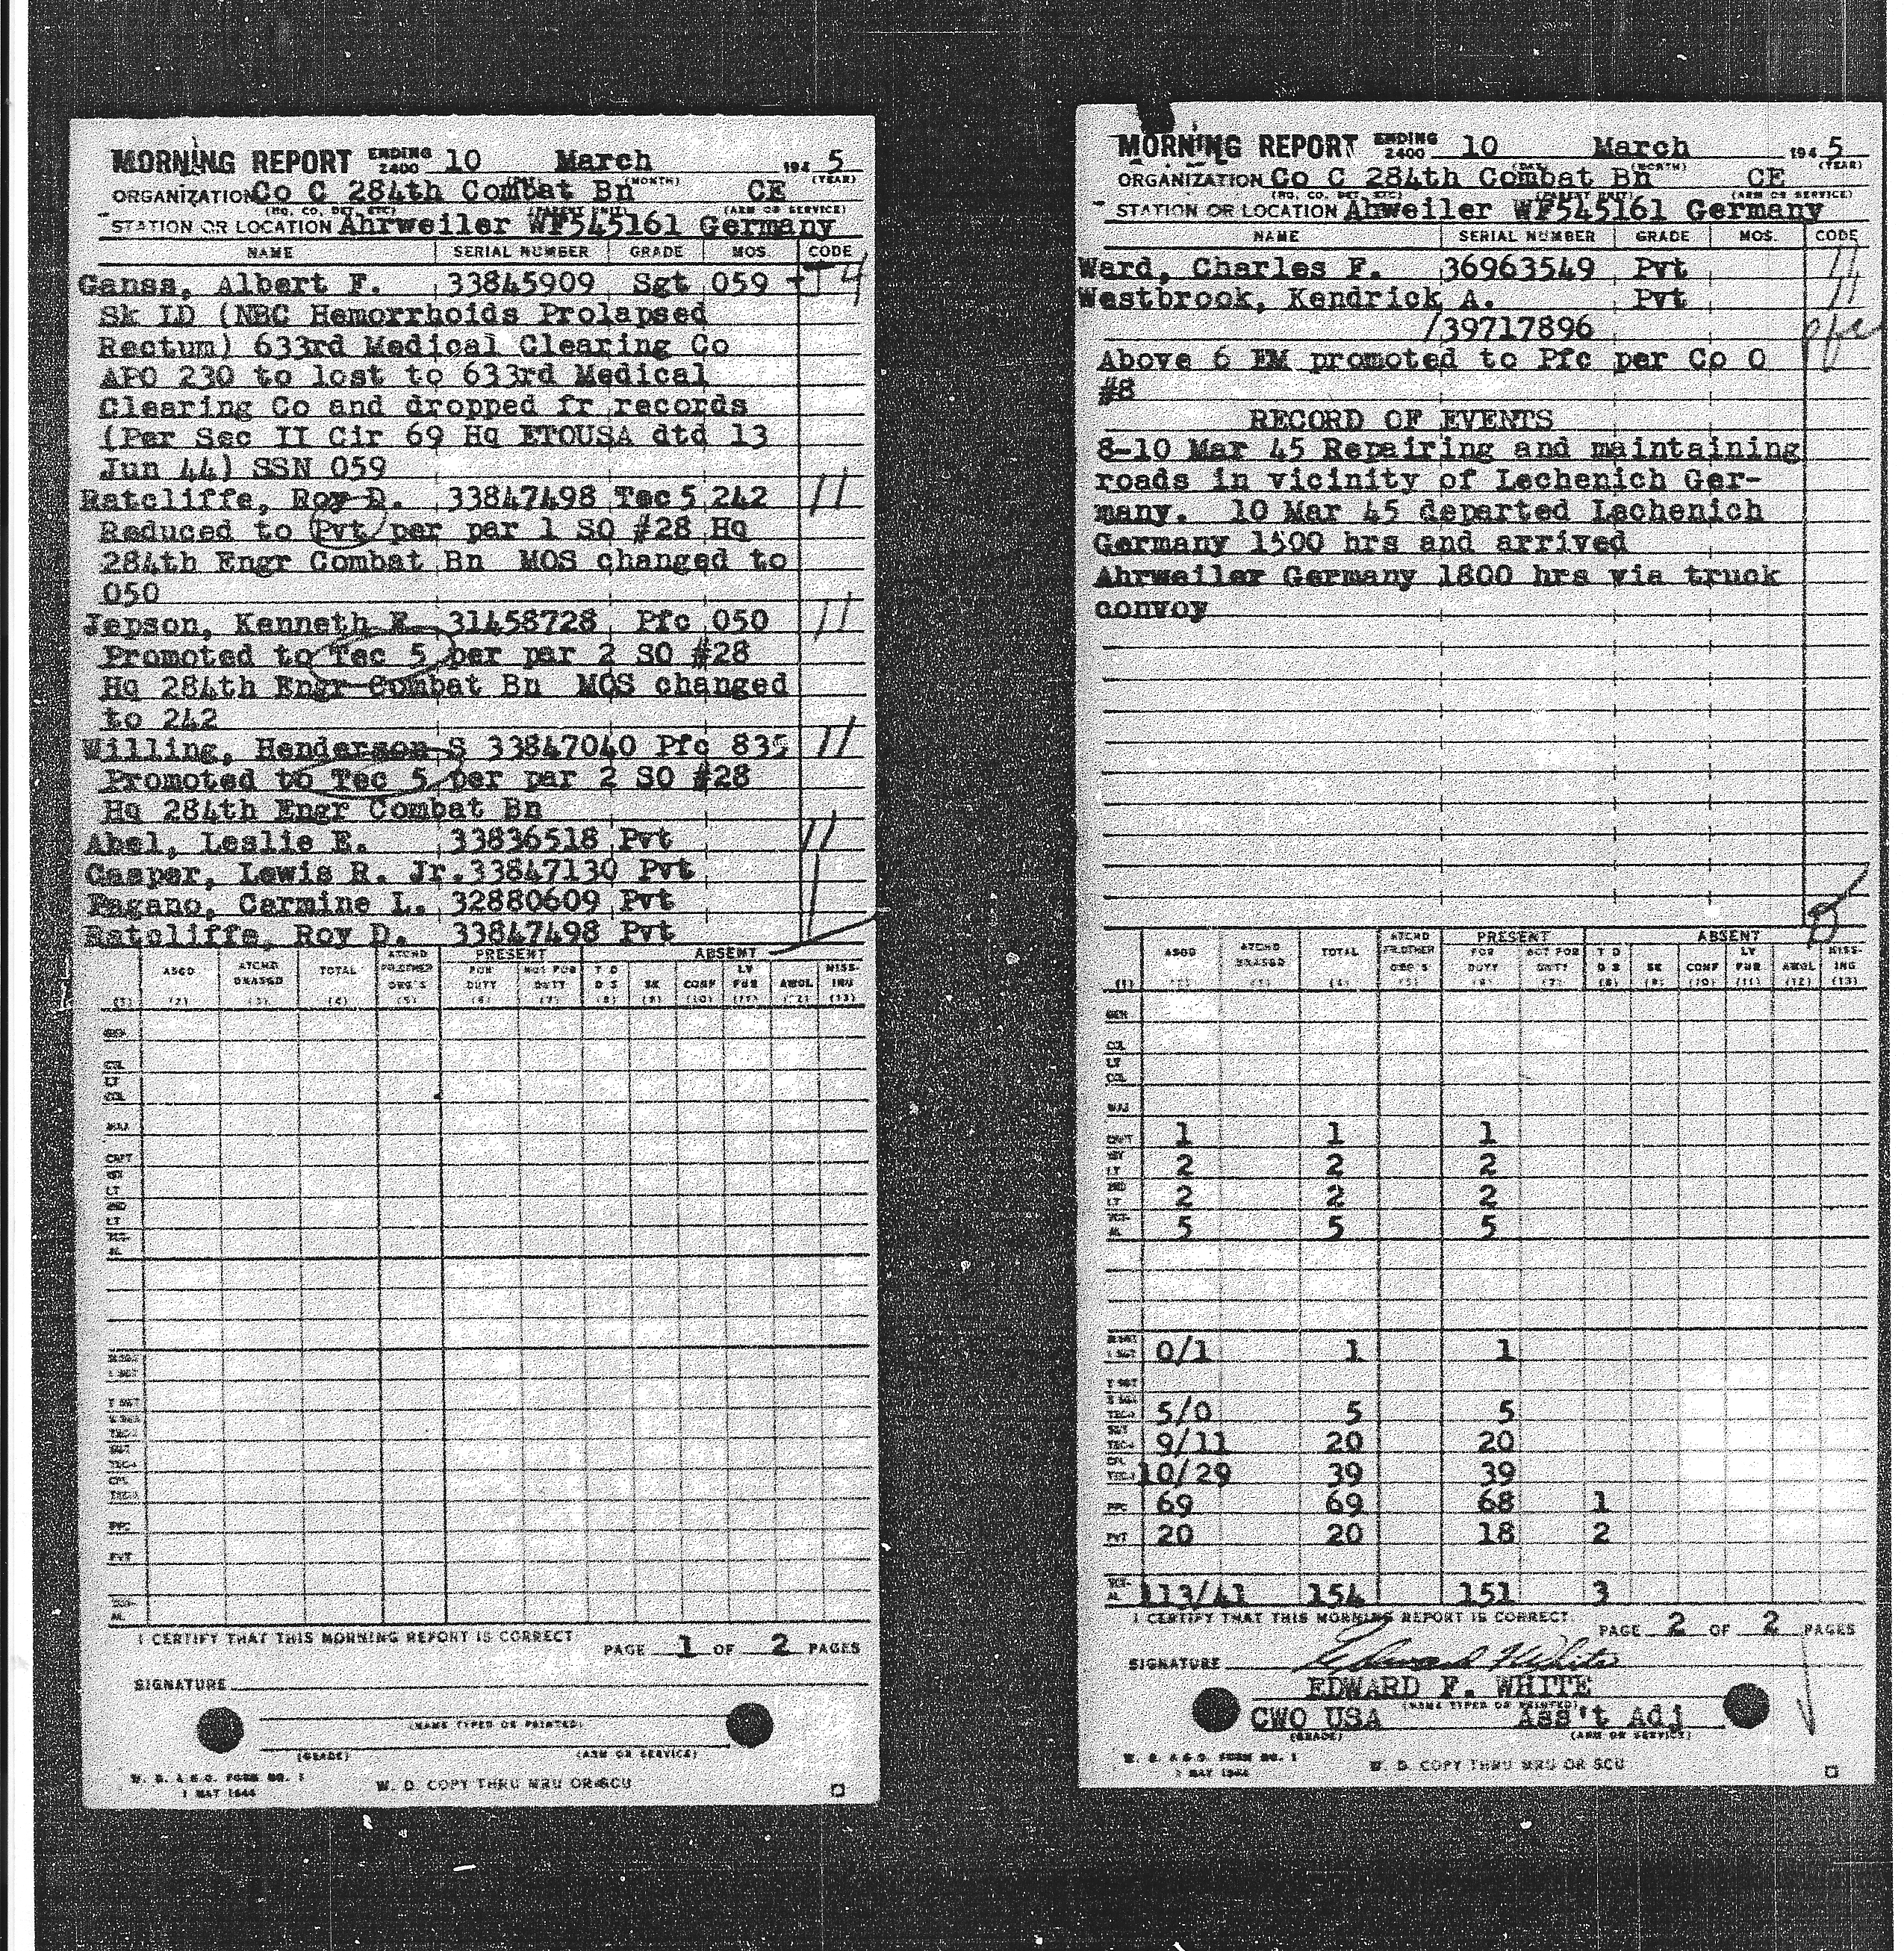 MORNING REPORT ENDING 2400 10 March 1945
(DAY) (MONTH) (YEAR)
ORGANIZATION Co C 284th Combat Bn CE
(HQ. CO. DET. ETC) (PARENT UNIT) (ARM OR SERVICE)
STATION OR LOCATION Ahrweiler WF545161 Germany
NAME SERIAL NUMBER GRADE MOS. CODE
Ganss, Albert F. 33845909 Sgt 059 - T 4
Sk LD (NBC Hemorrhoids Prolapsed
Rectum) 633rd Medical Clearing Co
APO 230 to lost to 633rd Medical
Clearing Co and dropped fr records
(Per Sec II Cir 69 Hq ETOUSA dtd 13
Jun 44) SSN 059
Ratcliffe, Roy D. 33847498 Tec 5 242 11
Reduced to Pvt per par 1 SO #28 Hq
284th Engr Combat Bn MOS changed to
050
Jepson, Kenneth E. 31458728 Pfc 050 11
Promoted to Tec 5 per par 2 SO #28
Hq 284th Engr Combat Bn MOS changed
to 242
Willing, Henderson S 33847040 Pfc 835 11
Promoted to Tec 5 per par 2 SO #28
Hq 284th Engr Combat Bn
Abel, Leslie E. 33836518 Pvt 11
Casper, Lewis R. Jr. 33847130 Pvt
Pagano, Carmine L. 32880609 Pvt
Ratcliffe, Roy D. 33847498 Pvt
PRESENT ABSENT
ASGD ATCHD UNASGD TOTAL ATCHD FR OTHER ORG'S FOR DUTY NOT FOR DUTY T D D S SK CONF LV FUR AWOL MISSING
(1) (2) (3) (4) (5) (6) (7) (8) (9) (10) (11) (12) (13)
GEN
COL
LT COL
MAJ
CAPT
1ST LT
2ND LT
TOTAL
M SGT
1 SGT
T SGT
S SGT
TEC 3
SGT
TEC 4
CPL
TEC 5
PFC
PVT
TOTAL
I CERTIFY THAT THIS MORNING REPORT IS CORRECT.
PAGE 1 OF 2 PAGES
SIGNATURE
(NAME TYPED OR PRINTED)
(GRADE) (ARM OR SERVICE)
W. D. A.G.O. FORM NO. 1
1 MAY 1944
W. D. COPY THRU MRU OR SCU
MORNING REPORT ENDING 2400 10 March 1945
(DAY) (MONTH) (YEAR)
ORGANIZATION Co C 284th Combat Bn CE
(HQ. CO. DET. ETC) (PARENT UNIT) (ARM OR SERVICE)
STATION OR LOCATION Ahweiler WF545161 Germany
NAME SERIAL NUMBER GRADE MOS. CODE
Ward, Charles F. 36963549 Pvt 11
Westbrook, Kendrick A. Pvt 11
/39717896 pfc
Above 6 EM promoted to Pfc per Co O
#8
RECORD OF EVENTS
8-10 Mar 45 Repairing and maintaining
roads in vicinity of Lechenich Ger-
many. 10 Mar 45 departed Lechenich
Germany 1500 hrs and arrived
Ahrweiler Germany 1800 hrs via truck
convoy
PRESENT ABSENT
ASGD ATCHD UNASGD TOTAL ATCHD FR OTHER ORG'S FOR DUTY NOT FOR DUTY T D D S SK CONF LV FUR AWOL MISSING
(1) (2) (3) (4) (5) (6) (7) (8) (9) (10) (11) (12) (13)
GEN
COL
LT COL
MAJ
CAPT 1 1 1
1ST LT 2 2 2
2ND LT 2 2 2
TOTAL 5 5 5
M SGT
1 SGT 0/1 1 1
T SGT
S SGT
TEC 3 5/0 5 5
SGT
TEC 4 9/11 20 20
CPL
TEC 5 10/29 39 39
PFC 69 69 68 1
PVT 20 20 18 2
TOTAL 113/41 154 151 3
I CERTIFY THAT THIS MORNING REPORT IS CORRECT.
PAGE 2 OF 2 PAGES
SIGNATURE Edward F White
EDWARD F. WHITE
(NAME TYPED OR PRINTED)
CWO USA Ass't Adj
(GRADE) (ARM OR SERVICE)
W. D. A.G.O. FORM NO. 1
1 MAY 1944
W. D. COPY THRU MRU OR SCU